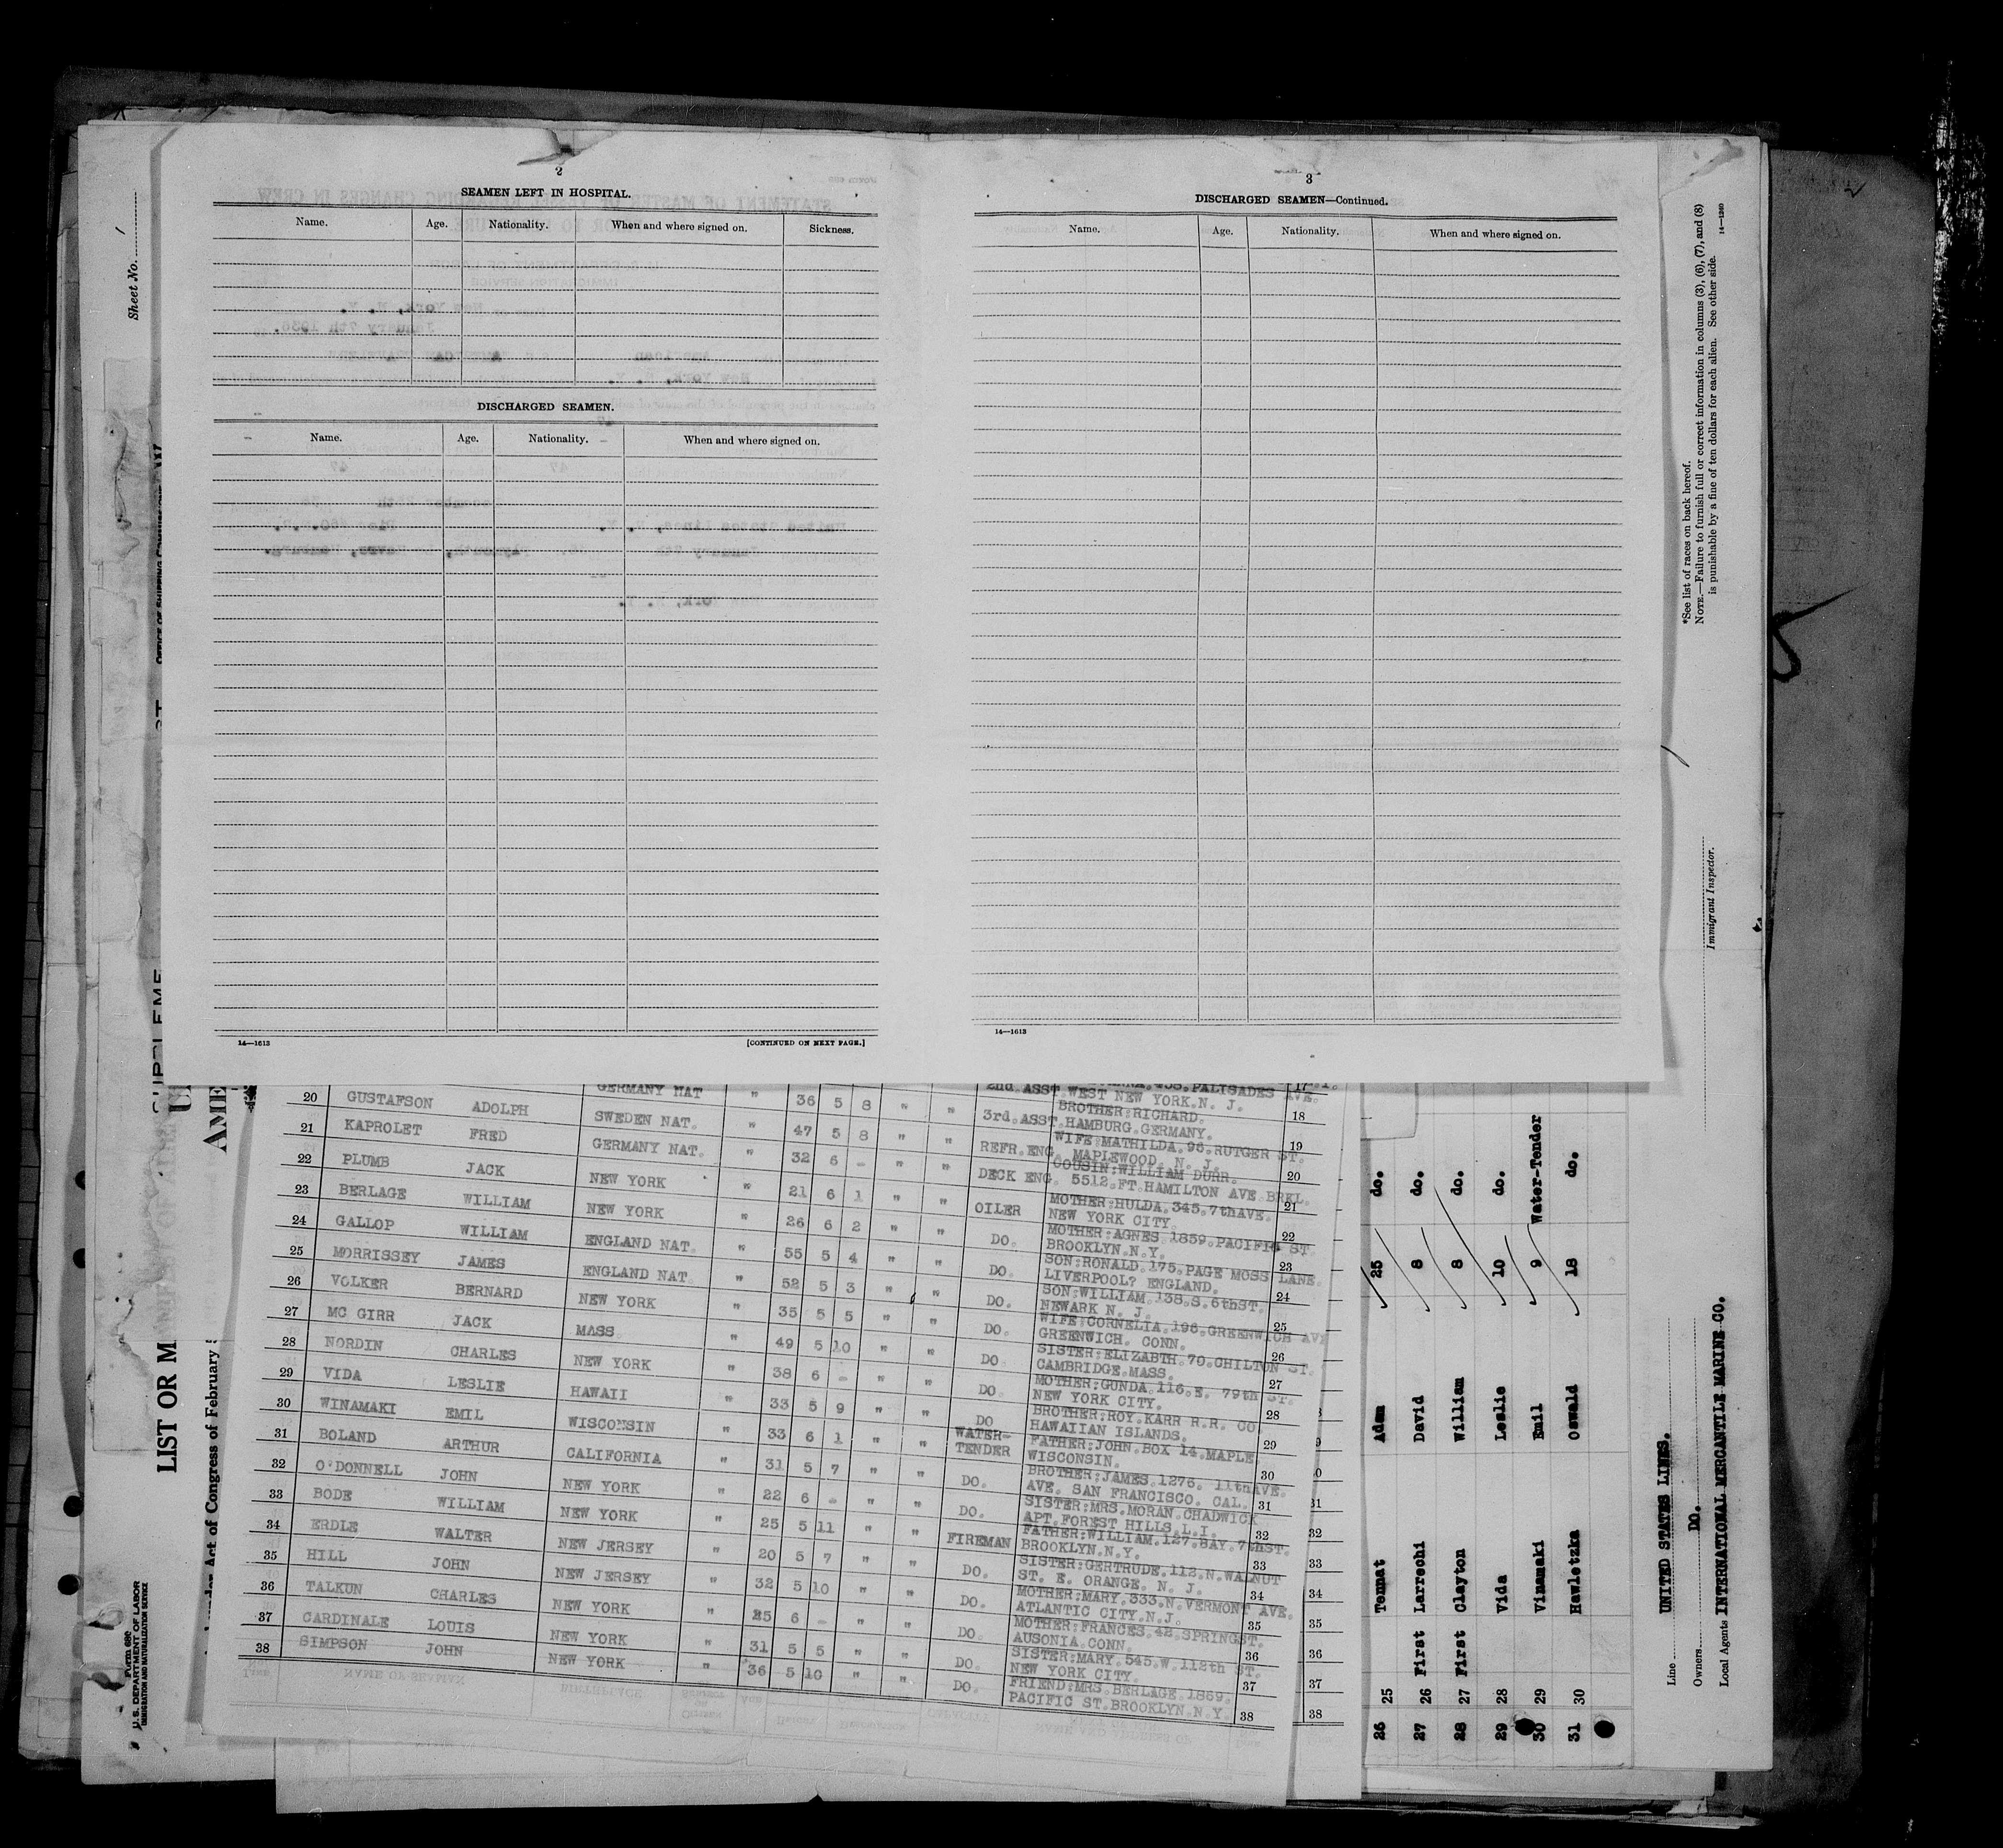 2
SEAMEN LEFT IN HOSPITAL.
Name. Age. Nationality. When and where signed on. Sickness.
DISCHARGED SEAMEN.
Name. Age. Nationality. When and where signed on.
14—1613 [CONTINUED ON NEXT PAGE.]
3
DISCHARGED SEAMEN—Continued.
Name. Age. Nationality. When and where signed on.
14—1613
Sheet No.
*See list of races on back hereof.
NOTE.—Failure to furnish full or correct information in columns (3), (6), (7), and (8)
is punishable by a fine of ten dollars for each alien. See other side. 14—1240
Immigrant Inspector.
GERMANY NAT " 2nd.ASST. WEST NEW YORK.N. J. 17
20 GUSTAFSON ADOLPH SWEDEN NAT. " 36 5 8 " " 3rd.ASST. BROTHER:RICHARD. HAMBURG.GERMANY. 18
21 KAPROLET FRED GERMANY NAT. " 47 5 8 " " REFR.ENG. WIFE:MATHILDA.96.RUTGER ST. MAPLEWOOD. N. J. 19
22 PLUMB JACK NEW YORK " 32 6 - " " DECK ENG. COUSIN:WILLIAM DURR. 5512.FT.HAMILTON AVE BRKL. 20
23 BERLAGE WILLIAM NEW YORK " 21 6 1 " " OILER MOTHER:HULDA.345.7thAVE. NEW YORK CITY. 21
24 GALLOP WILLIAM ENGLAND NAT. " 26 6 2 " " DO. MOTHER:AGNES.1859.PACIFIC ST. BROOKLYN.N.Y. 22
25 MORRISSEY JAMES ENGLAND NAT. " 55 5 4 " " DO. SON:RONALD.175.PAGE MOSS LANE. LIVERPOOL? ENGLAND. 23
26 VOLKER BERNARD NEW YORK " 52 5 3 " " DO. SON:WILLIAM.138.S.6thST. NEWARK N. J. 24
27 MC GIRR JACK MASS " 35 5 5 " " DO. WIFE:CORNELIA.196.GREENWICH AVE GREENWICH. CONN. 25
28 NORDIN CHARLES NEW YORK " 49 5 10 " " DO. SISTER:ELIZABTH.70.CHILTON ST. CAMBRIDGE.MASS. 26
29 VIDA LESLIE HAWAII " 38 6 - " " DO. MOTHER:GUNDA.116.E. 79th ST. NEW YORK CITY. 27
30 WINAMAKI EMIL WISCONSIN " 33 5 9 " " DO BROTHER:ROY.KARR R.R. CO. HAWAIIAN ISLANDS. 28
31 BOLAND ARTHUR CALIFORNIA " 33 6 1 " " WATER-TENDER FATHER:JOHN.BOX 14.MAPLE. WISCONSIN. 29
32 O'DONNELL JOHN NEW YORK " 31 5 7 " " DO. BROTHER:JAMES.1276. 11thAVE. AVE. SAN FRANCISCO. CAL. 30
33 BODE WILLIAM NEW YORK " 22 6 - " " DO. SISTER:MRS.MORAN.CHADWICK APT.FOREST HILLS.L.I. 31
34 ERDLE WALTER NEW JERSEY " 25 5 11 " " FIREMAN FATHER:WILLIAM.127.BAY.7thST. BROOKLYN.N.Y. 32
35 HILL JOHN NEW JERSEY " 20 5 7 " " DO. SISTER:GERTRUDE.112.N.WALNUT ST. E. ORANGE. N. J. 33
36 TALKUN CHARLES NEW YORK " 32 5 10 " " DO. MOTHER:MARY.333.N.VERMONT AVE. ATLANTIC CITY.N.J. 34
37 CARDINALE LOUIS NEW YORK " 25 6 - " " DO. MOTHER:FRANCES.42.SPRINGST. AUSONIA.CONN. 35
38 SIMPSON JOHN NEW YORK " 31 5 5 " " DO. SISTER:MARY.545.W.112th ST. NEW YORK CITY. 36
" 36 5 10 " " DO. FRIEND:MRS.BERLAGE.1859. PACIFIC ST.BROOKLYN.N.Y. 37
38
31
32
33
34
35
36
37
38
26 25 Tennat Adam 25 do.
27 26 First Larrechi David 8 do.
28 27 First Clayton William 8 do.
29 28 Vida Leslie 10 do.
30 29 Vinamaki Emil 9 Water-Tender
31 30 Hawletzka Oswald 18 do.
Line UNITED STATES LINES.
Owners DO.
Local Agents INTERNATIONAL MERCANTILE MARINE CO.
LIST OR M
AME
Act of Congress of February
Form 680
U. S. DEPARTMENT OF LABOR
IMMIGRATION AND NATURALIZATION SERVICE